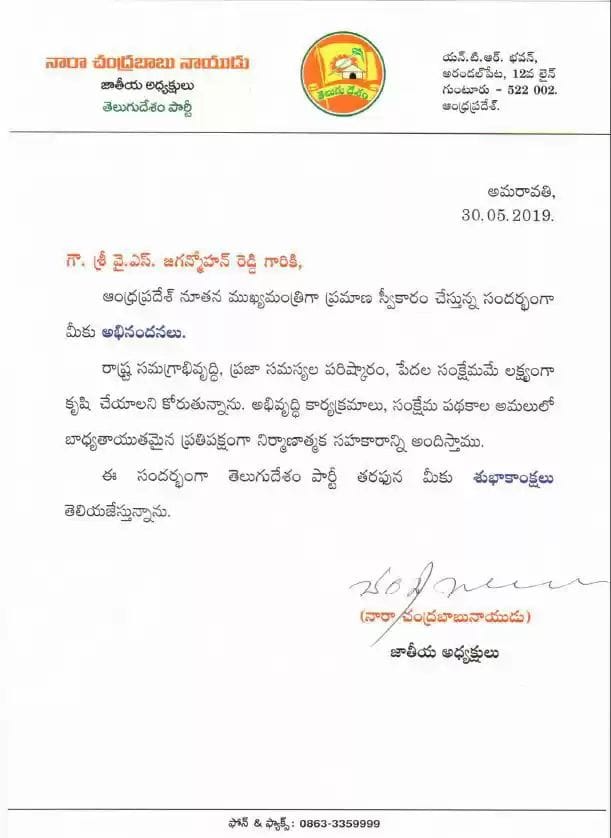 నారా చంద్రబాబు నాయుడు
జాతీయ అధ్యక్షులు
తెలుగుదేశం పార్టీ
తెలుగు దేశం
యన్.టి.ఆర్. భవన్,
అరండల్‌పేట, 12వ లైన్
గుంటూరు - 522 002.
ఆంధ్రప్రదేశ్.
అమరావతి,
30.05.2019.
గౌ. శ్రీ వై.ఎస్. జగన్మోహన్ రెడ్డి గారికి,
ఆంధ్రప్రదేశ్ నూతన ముఖ్యమంత్రిగా ప్రమాణ స్వీకారం చేస్తున్న సందర్భంగా
మీకు అభినందనలు.
రాష్ట్ర సమగ్రాభివృద్ధి, ప్రజా సమస్యల పరిష్కారం, పేదల సంక్షేమమే లక్ష్యంగా
కృషి చేయాలని కోరుతున్నాను. అభివృద్ధి కార్యక్రమాలు, సంక్షేమ పథకాల అమలులో
బాధ్యతాయుతమైన ప్రతిపక్షంగా నిర్మాణాత్మక సహకారాన్ని అందిస్తాము.
ఈ సందర్భంగా తెలుగుదేశం పార్టీ తరఫున మీకు శుభాకాంక్షలు
తెలియజేస్తున్నాను.
(నారా చంద్రబాబునాయుడు)
జాతీయ అధ్యక్షులు
ఫోన్ & ఫ్యాక్స్: 0863-3359999